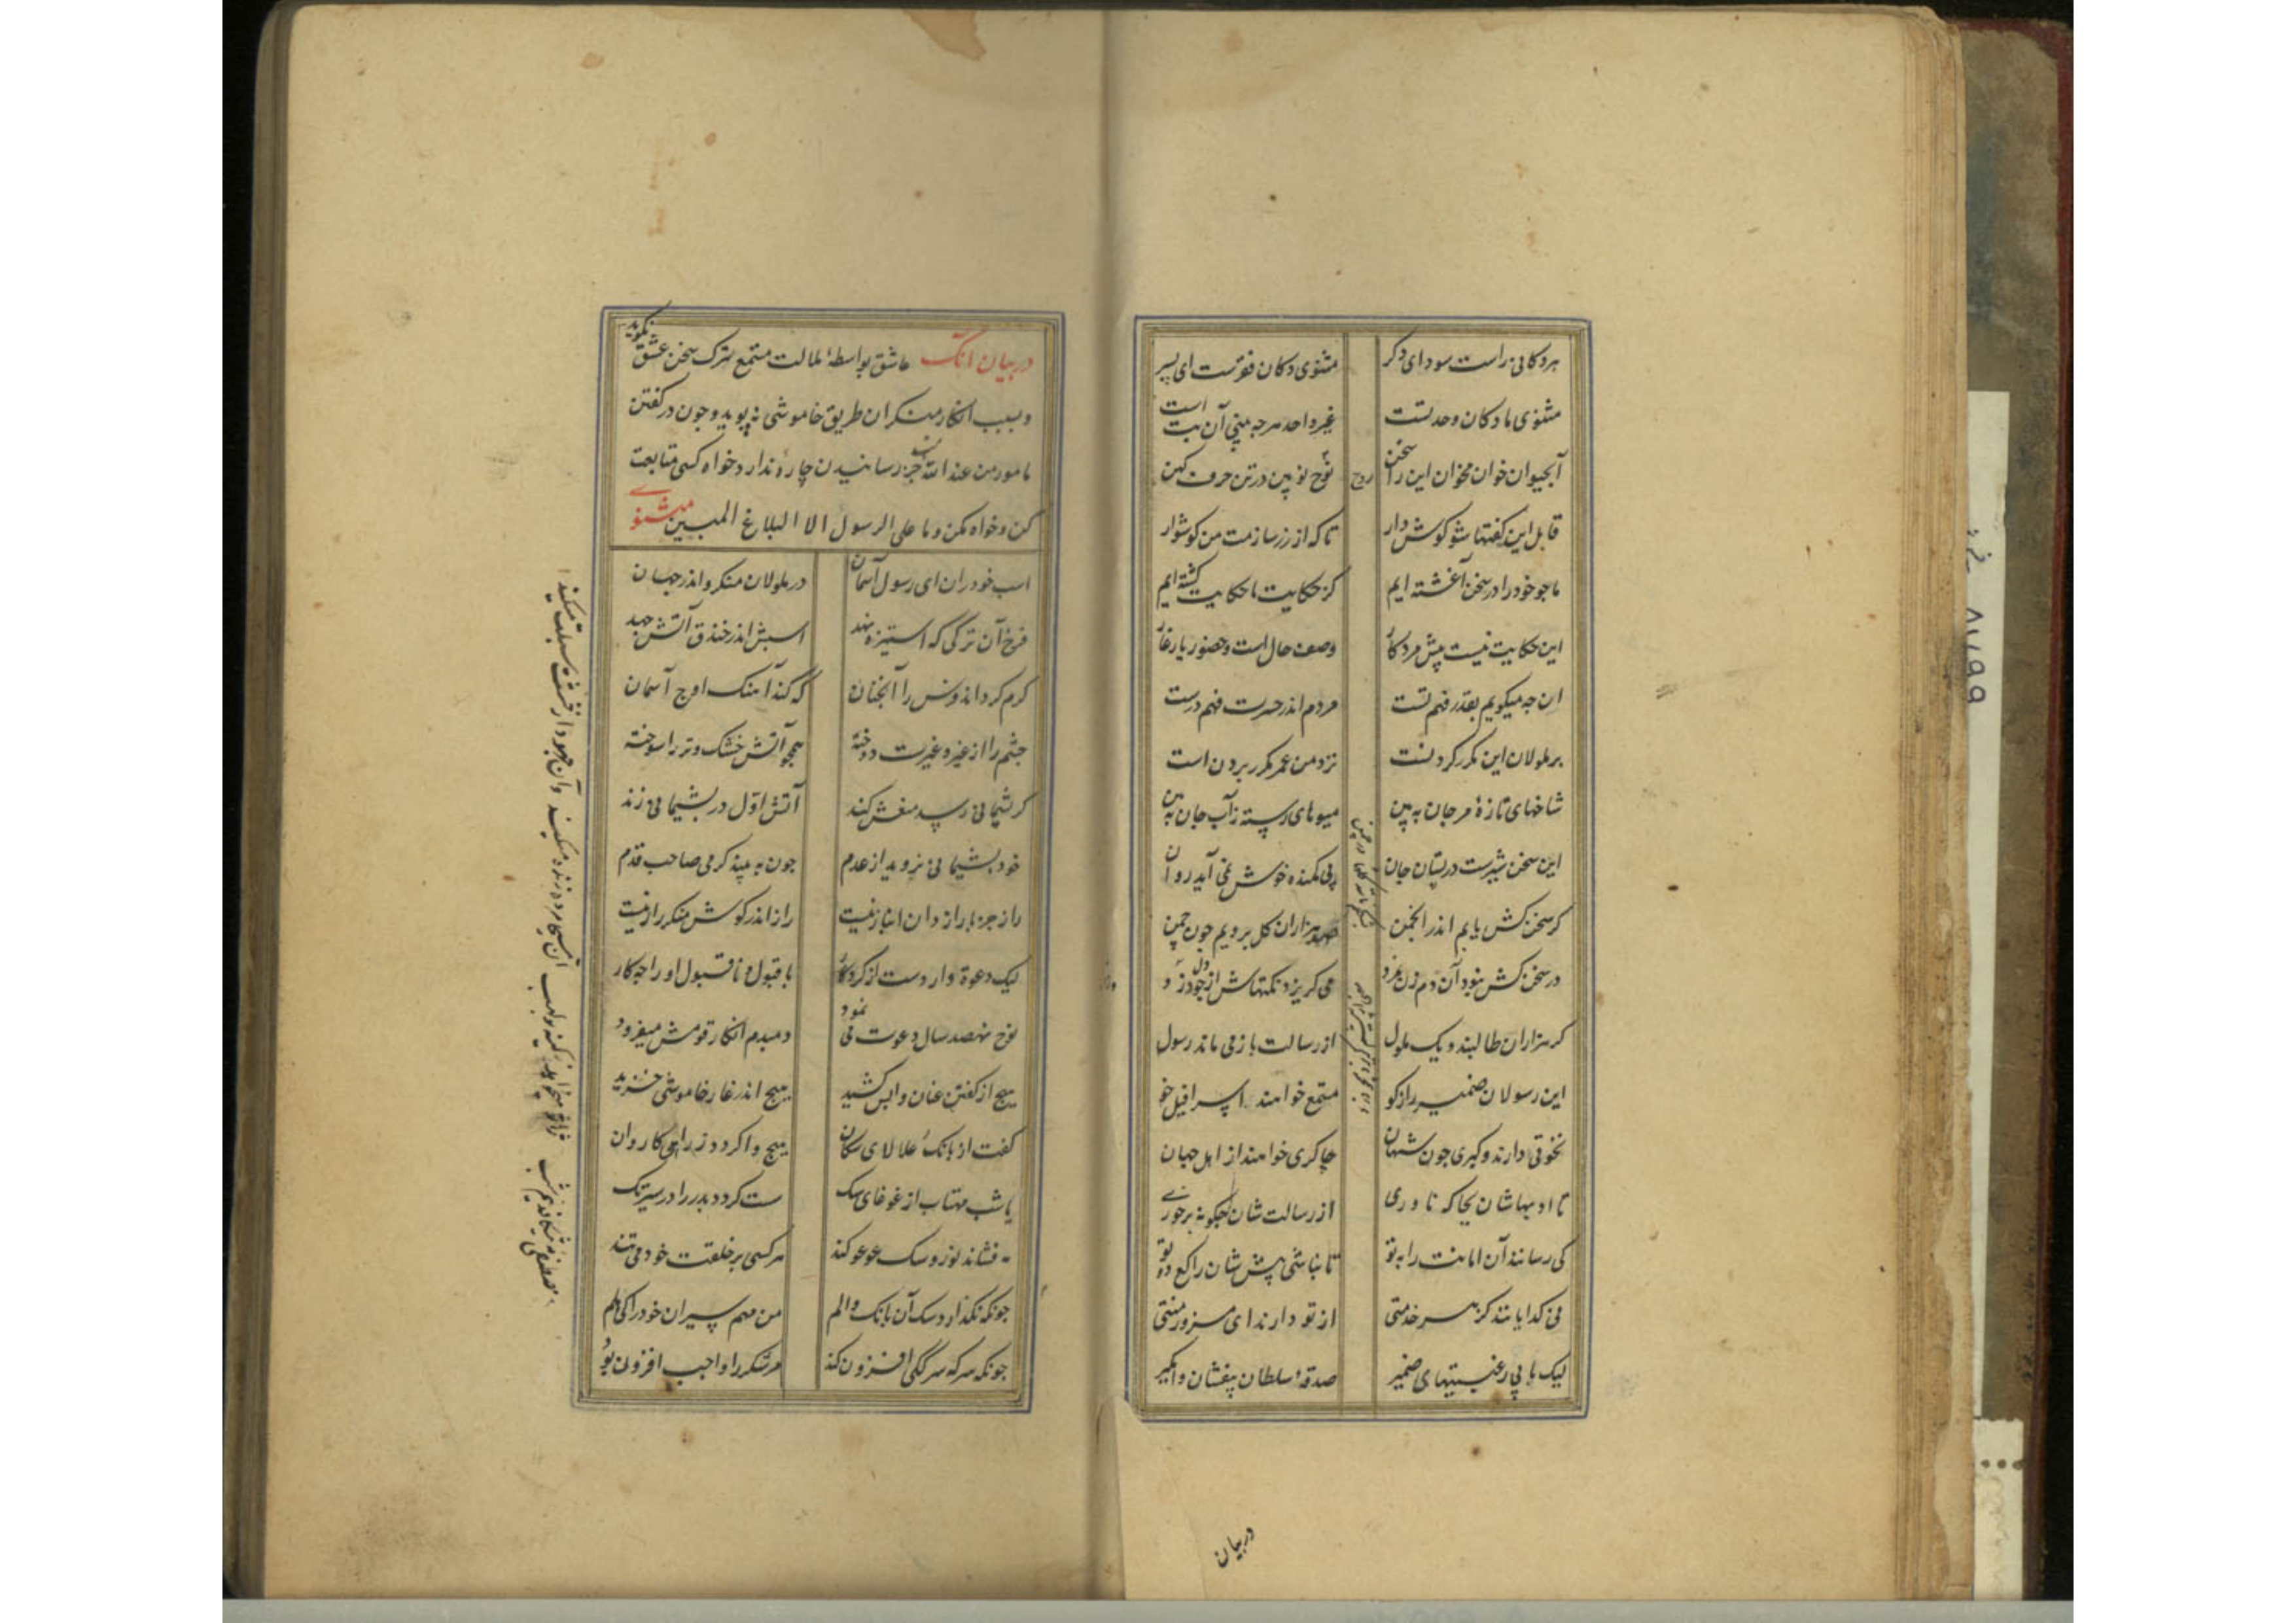 هر دکانی راست سودای دکر
مثنوی دکان فقرست ای پسر
مثنوی ما دکان وحدتست
غیر واحد هرجه بینی آن بت است
آبحیوان خوان مخوان این را سخن
روح نو بین در تن حرف کهن
قابل این کفتها شو کوش دار
تا که از زر سازمت من کوشوار
ما جو خود را در سخن آغشته ایم
کز حکایت ما حکایت کشته ایم
این حکایت نیست پیش مرد کار
وصف حال است و حضور یار غار
ان جه میکویم بقدر فهم تست
مردم اندر حسرت فهم درست
بر ملولان این مکرر کردنست
نزد من عمر مکرر بردن است
شاخهای تازهٔ مرجان به بین
میوهای رسته ز آب جان به بین
این سخن شیرست در پستان جان
بی کمنده خوش نمی آید روان
کر سخن کش یابم اندر انجمن
صد هزاران کل برویم جون چمن
در سخن کش نبود آن دم زن بمزد
می کریزد نکتها ش از دل جو دزد
کر هزاران طالبند و یک ملول
از رسالت باز می ماند رسول
این رسولان ضمیر راز کو
مستمع خواهند اسرافیل خو
نخوتی دارند و کبری جون شهان
چاکری خواهند از اهل جهان
تا ادبهاشان بجا که ناوری
از رسالت شان چکونه برخوری
کی رسانند آن امانت را به تو
تا نباشی پیش شان راکع دو تو
نی کدایانند کز هر خدمتی
از تو دارند ای مزور منتی
لیک با بی رغبتیهای ضمیر
صدقهٔ سلطان بیفشان وامکیر
در بیان
در بیان انک عاشق بواسطهٔ ملالت مستمع ترک سخن عشق نکوید
و بسبب انکار منکران طریق خاموشی نه پوید و جون در کفتن
مامور من عند الله است جز رسانیدن چاره ندارد خواه کسی متابعت
کن و خواه مکن و ما علی الرسول الا البلاغ المبین مثنوی
اسب خود ران ای رسول آسمان
در ملولان منکر و اندر جهان
فرخ آن ترکی که استیزه نهد
اسبش اندر خندق آتش جهد
کرم کرداند فرس را آنجنان
که کند آهنک اوج آسمان
جشم را از غیر و غیرت دوخته
همجو آتش خشک و تر را سوخته
کر پشیمانی رسد مغرش کند
آتش اول در پشیمانی زند
خود پشیمانی نروید از عدم
جون به بیند کرمی صاحب قدم
راز جز با رازدان انباز نیست
راز اندر کوش منکر راز نیست
لیک دعوة واردست از کردکار
با قبول و نا قبول او را جه کار
نوح نهصد سال دعوت می نمود
دمبدم انکار قومش میفزود
هیج از کفتن عنان وابس کشید
هیج اندر غار خاموشی خزید
کفت از بانک و علالای سکان
هیج واکردد ز راهی کاروان
یا شب مهتاب از غوغای سک
ست کردد بدر را در سیر تک
مه فشاند نور و سک عوعو کند
هر کسی بر خلقت خود می تند
جونکه نکذارد سک آن بانک و الم
من مهم سیران خود را کی هلم
جونکه سرکه سرککی افزون کند
مر شکر را واجب افزون بود